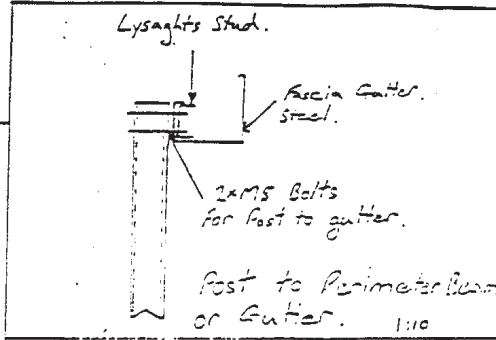 Lysaghts Stud.
Fascia Gutter.
Steel.
2xM5 Bolts
For Post to gutter.
Post to Perimeter Beam
or Gutter. 1:10